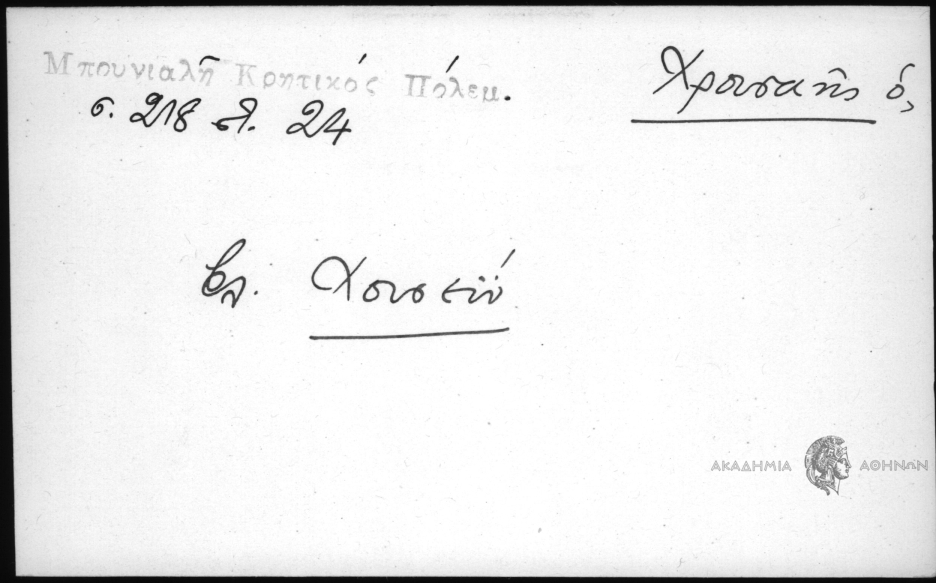 Μπουνιαλῆ Κρητικός Πόλεμ.
σ. 218 στ. 24
Χρουσαῆς ὁ,
βλ. Χουσεΐν
ΑΚΑΔΗΜΙΑ ΑΘΗΝΩΝ